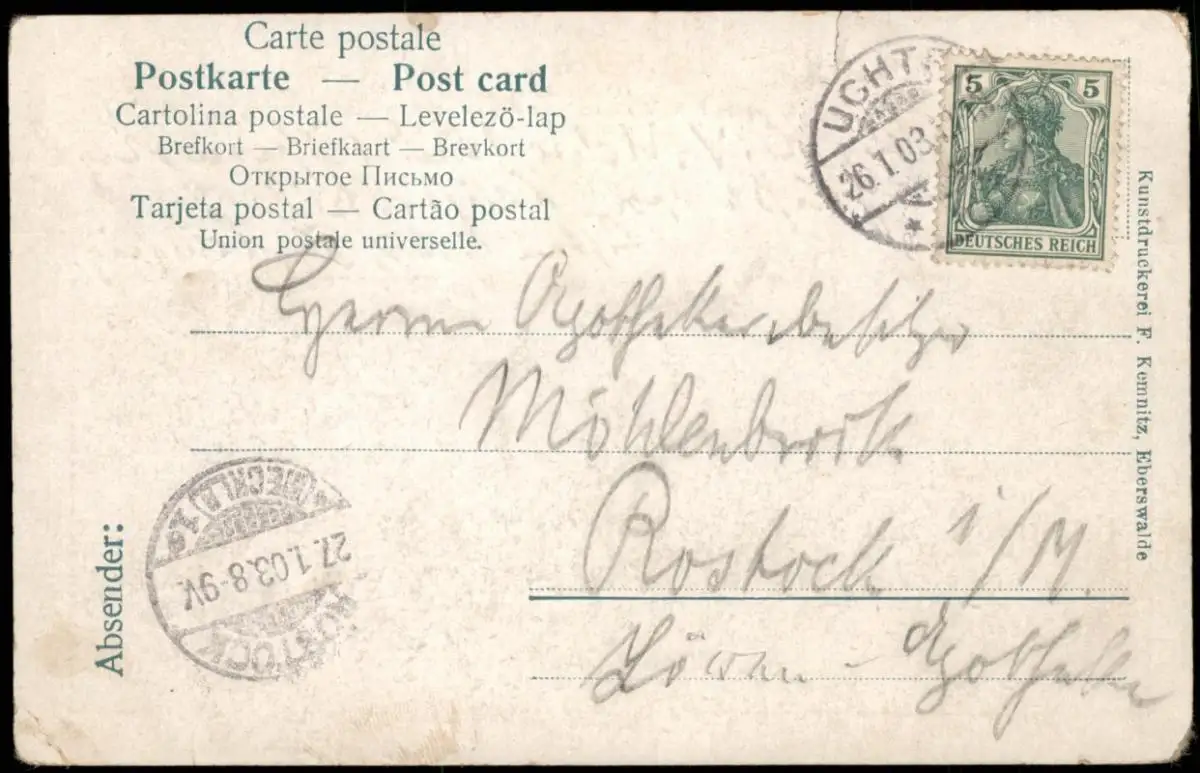 Carte postale
Postkarte — Post card
Cartolina postale — Levelező-lap
Brefkort — Briefkaart — Brevkort
Открытое Письмо
Tarjeta postal — Cartão postal
Union postale universelle.
UCHT
26.1.03.
5 5
DEUTSCHES REICH
Kunstdruckerei F. Kemnitz, Eberswalde
Herrn Apothekenbesitzer
Möhlenbrock
Rostock i/M.
Löwen-Apotheke
Absender:
ROSTOCK
27.1.03.8-9V.
(MECKLB) 1.